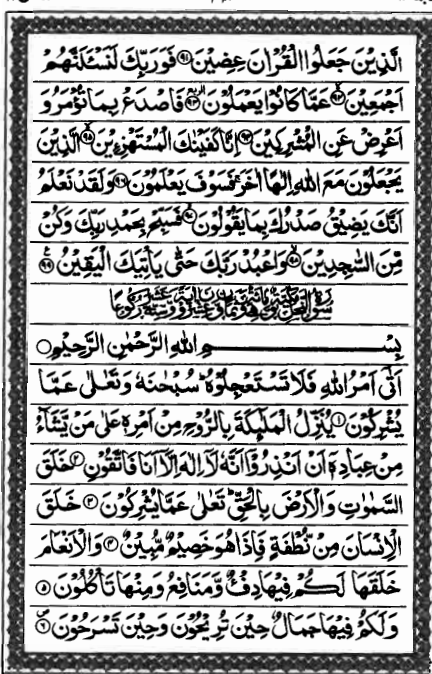 الَّذِيْنَ جَعَلُوا الْقُرْاٰنَ عِضِيْنَ ۝۹۱ فَوَرَبِّكَ لَنَسْـَٔلَنَّهُمْ
اَجْمَعِيْنَ ۝۹۲ عَمَّا كَانُوْا يَعْمَلُوْنَ ۝۹۳ فَاصْدَعْ بِمَا تُؤْمَرُ وَ
اَعْرِضْ عَنِ الْمُشْرِكِيْنَ ۝۹۴ اِنَّا كَفَيْنٰكَ الْمُسْتَهْزِءِيْنَ ۝۹۵ الَّذِيْنَ
يَجْعَلُوْنَ مَعَ اللّٰهِ اِلٰهًا اٰخَرَ فَسَوْفَ يَعْلَمُوْنَ ۝۹۶ وَلَقَدْ نَعْلَمُ
اَنَّكَ يَضِيْقُ صَدْرُكَ بِمَا يَقُوْلُوْنَ ۝۹۷ فَسَبِّحْ بِحَمْدِ رَبِّكَ وَكُنْ
مِّنَ السّٰجِدِيْنَ ۝۹۸ وَاعْبُدْ رَبَّكَ حَتّٰى يَاْتِيَكَ الْيَقِيْنُ ۝۹۹
بِسْمِ اللّٰهِ الرَّحْمٰنِ الرَّحِيْمِ
اَتٰٓى اَمْرُ اللّٰهِ فَلَا تَسْتَعْجِلُوْهُ سُبْحٰنَهٗ وَتَعٰلٰى عَمَّا
يُشْرِكُوْنَ ۝۱ يُنَزِّلُ الْمَلٰٓئِكَةَ بِالرُّوْحِ مِنْ اَمْرِهٖ عَلٰى مَنْ يَّشَآءُ
مِنْ عِبَادِهٖٓ اَنْ اَنْذِرُوْٓا اَنَّهٗ لَآ اِلٰهَ اِلَّآ اَنَا فَاتَّقُوْنِ ۝۲ خَلَقَ
السَّمٰوٰتِ وَالْاَرْضَ بِالْحَقِّ تَعٰلٰى عَمَّا يُشْرِكُوْنَ ۝۳ خَلَقَ
الْاِنْسَانَ مِنْ نُّطْفَةٍ فَاِذَا هُوَ خَصِيْمٌ مُّبِيْنٌ ۝۴ وَالْاَنْعَامَ
خَلَقَهَا لَكُمْ فِيْهَا دِفْءٌ وَّمَنَافِعُ وَمِنْهَا تَاْكُلُوْنَ ۝۵
وَلَكُمْ فِيْهَا جَمَالٌ حِيْنَ تُرِيْحُوْنَ وَحِيْنَ تَسْرَحُوْنَ ۝۶